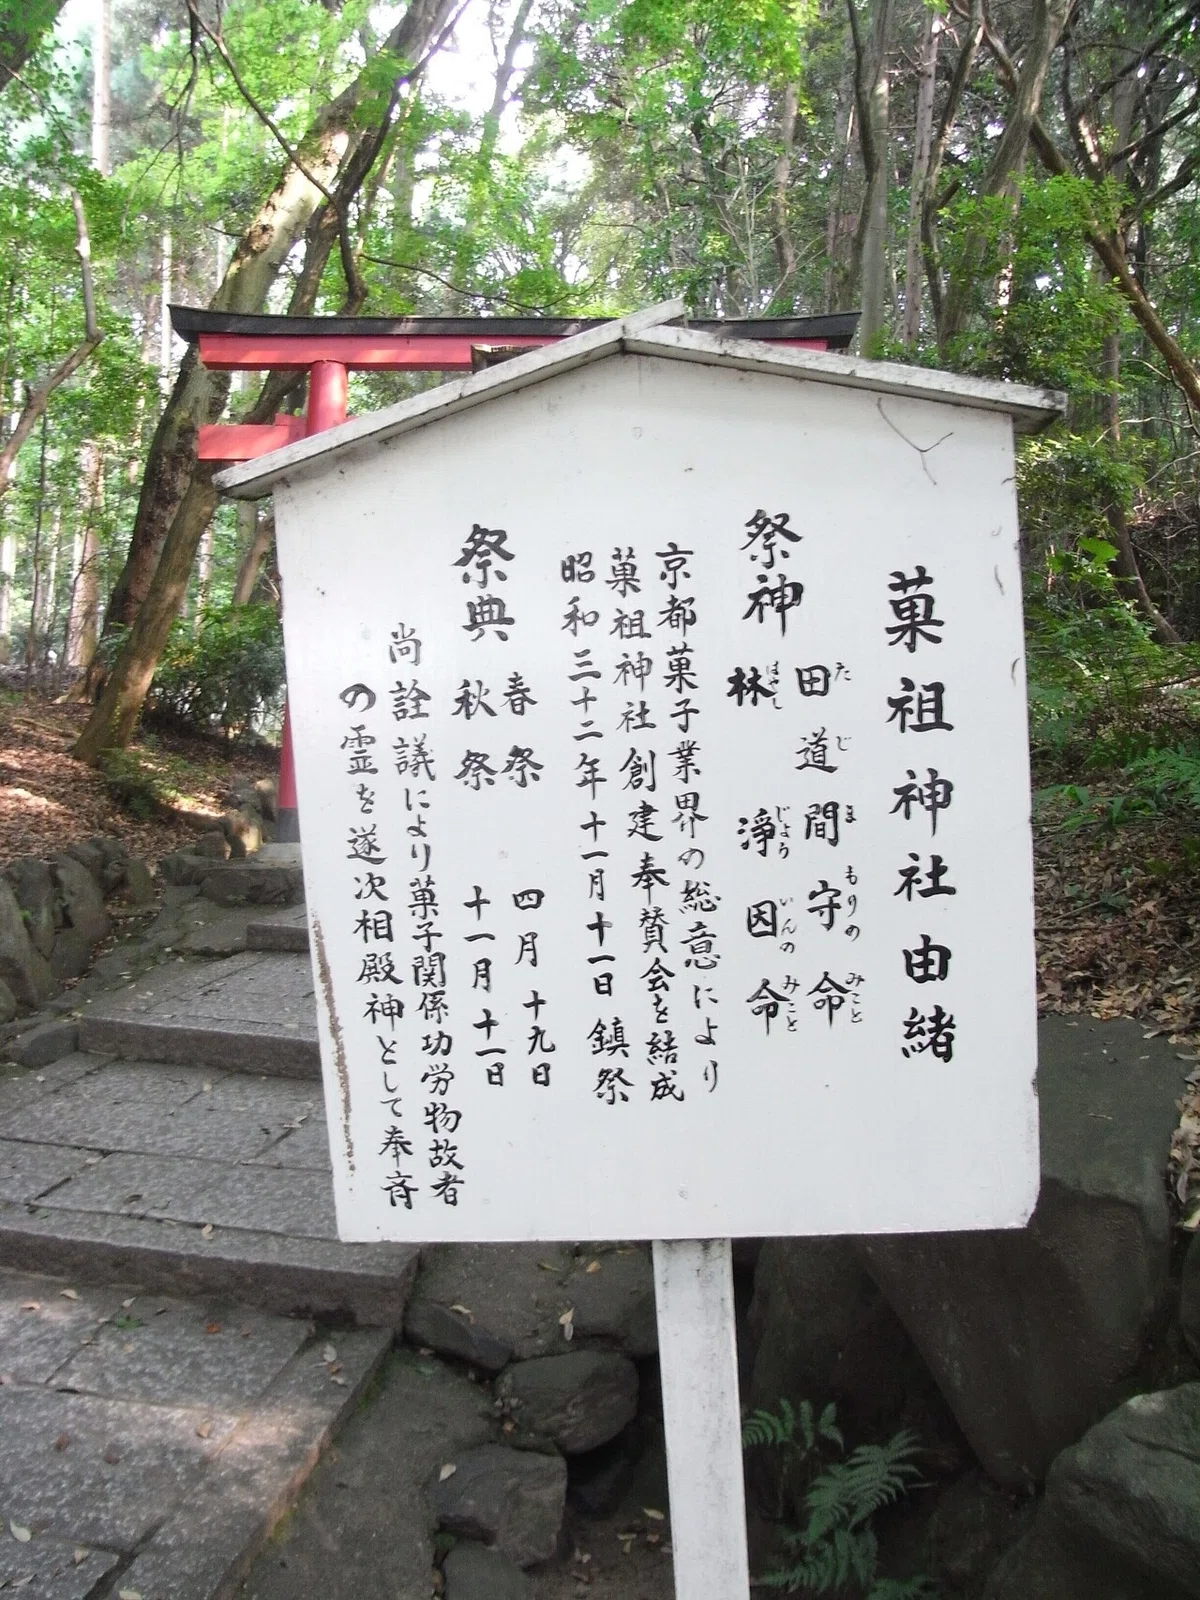 菓祖神社由緒
祭神
田道間守命
たじまもりのみこと
林浄因命
はやしじょういんのみこと
京都菓子業界の総意により
菓祖神社創建奉賛会を結成
昭和三十二年十一月十一日鎮祭
祭典
春祭 四月十九日
秋祭 十一月十一日
尚詮議により菓子関係功労物故者
の霊を逐次相殿神として奉斎